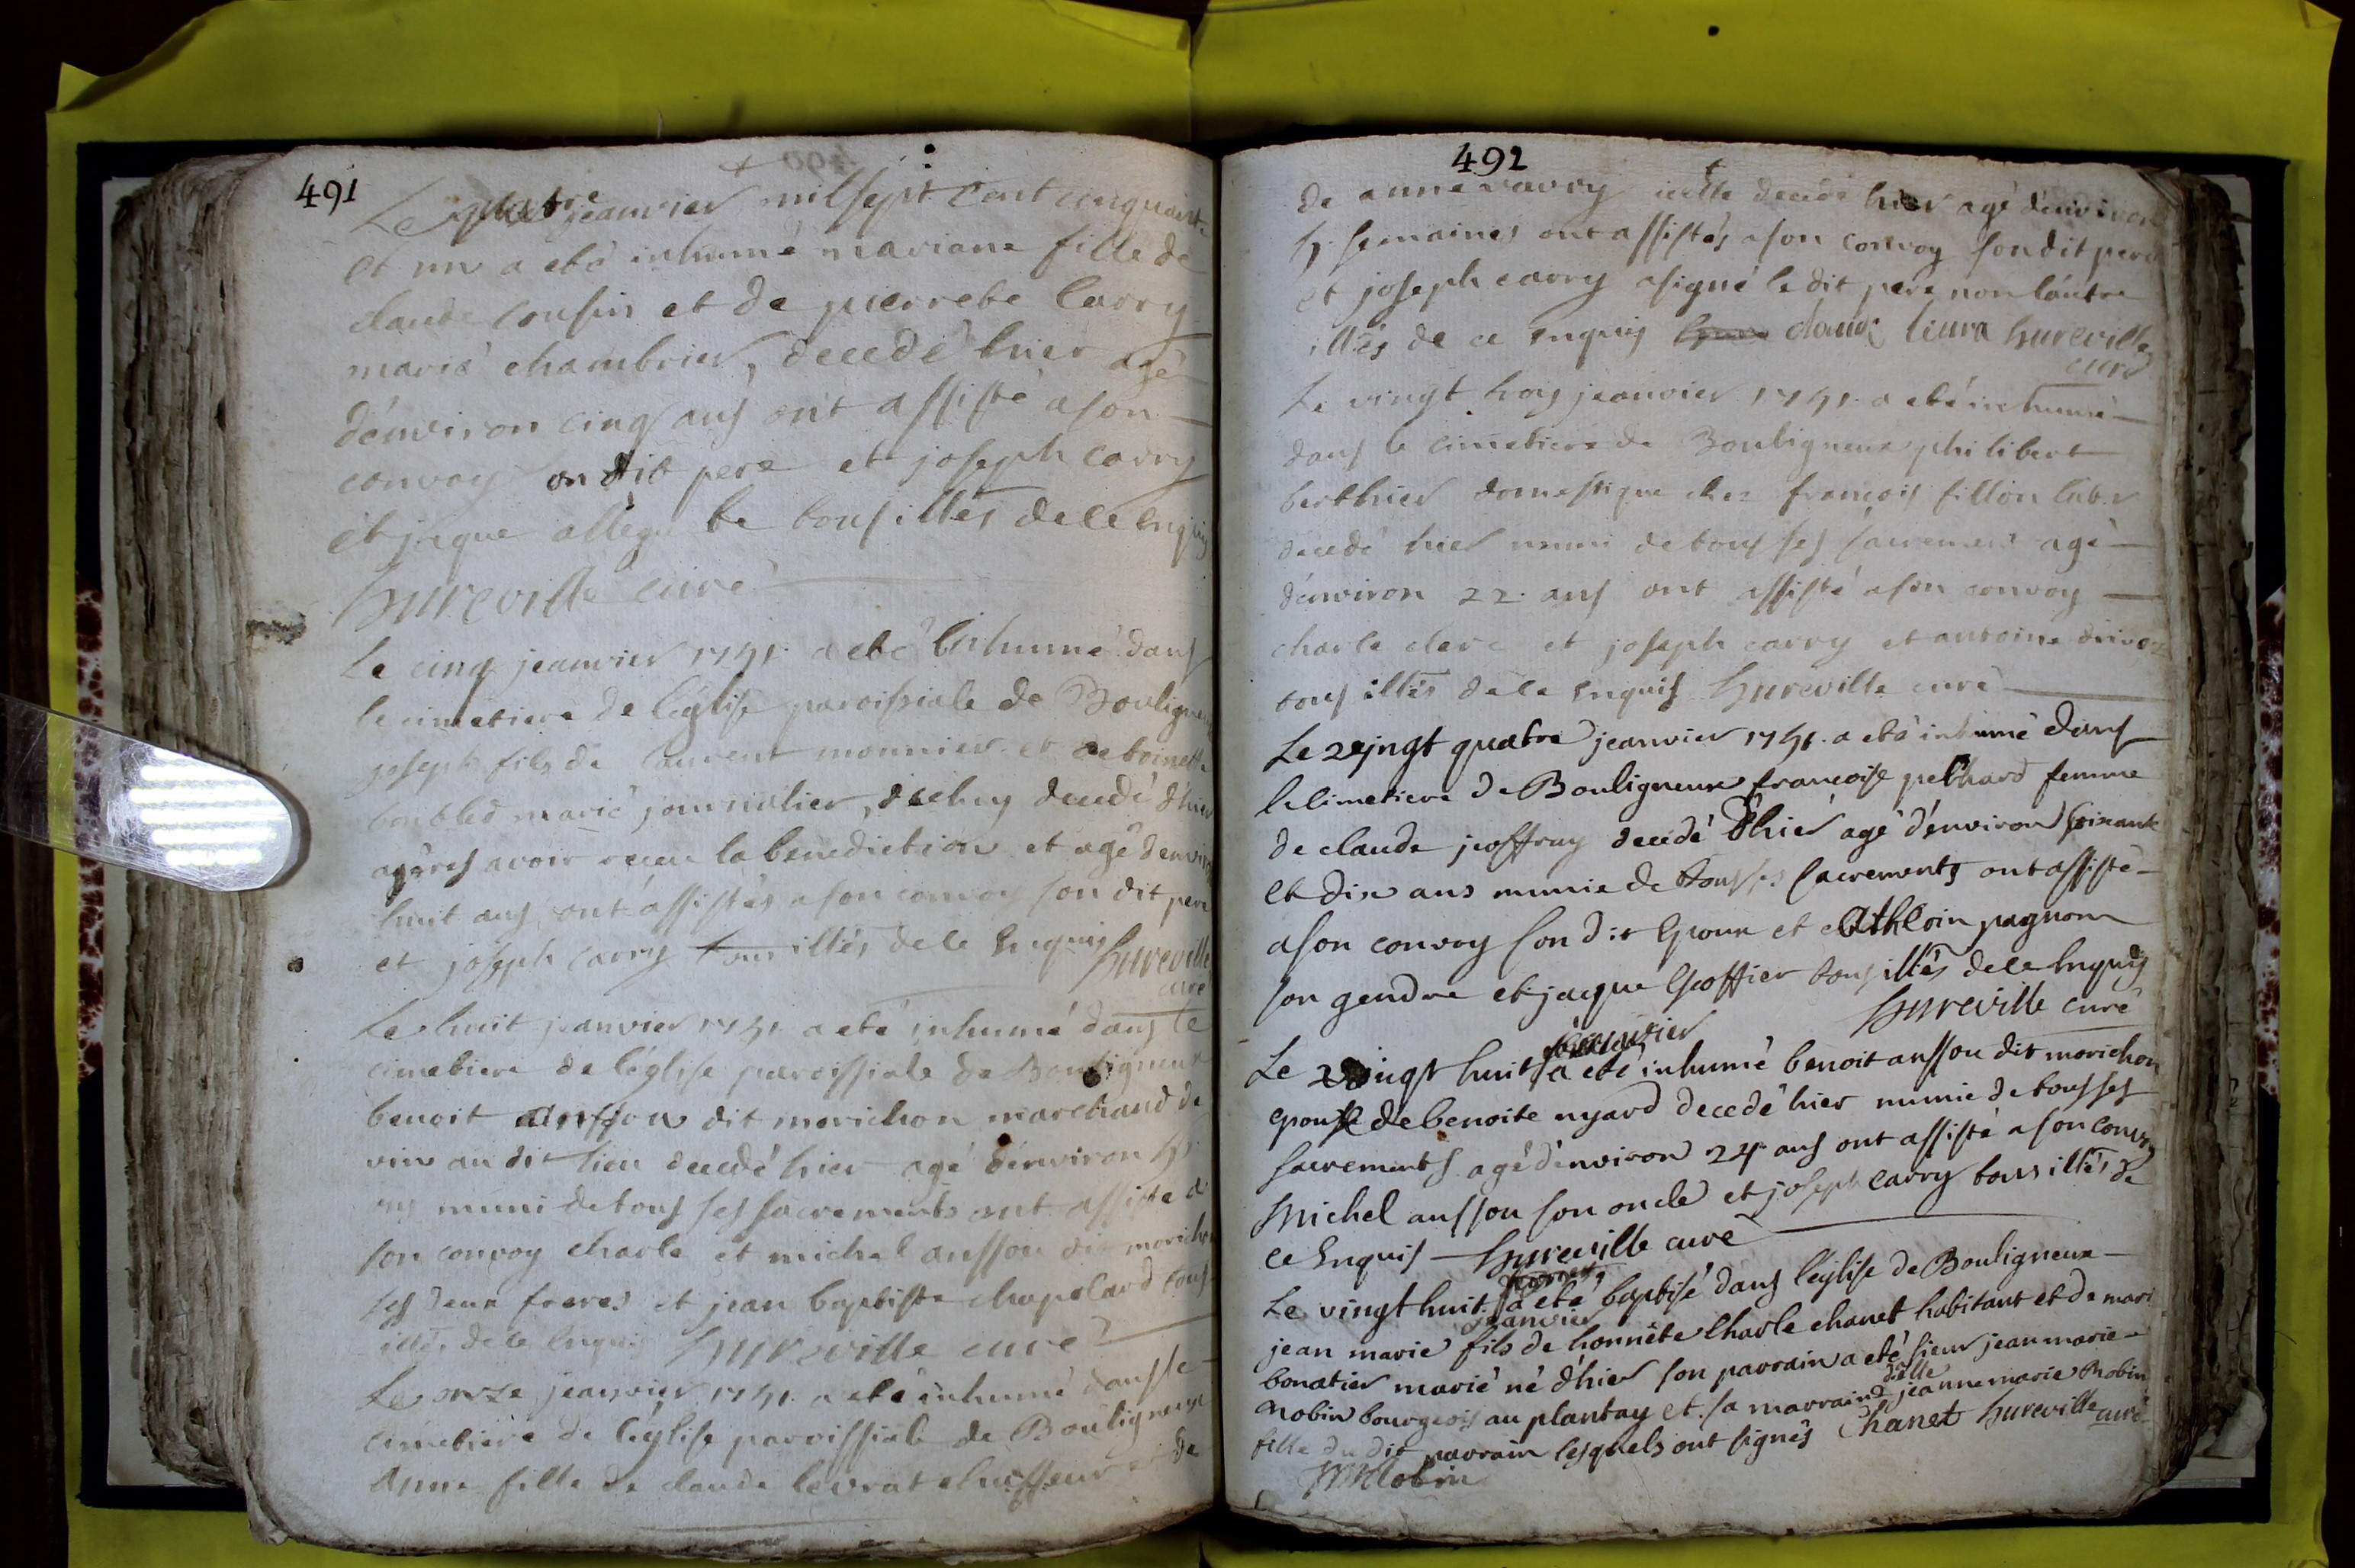 491
Le quatre jeanvier mil sept cent cinquante
et un a eté inhumé mariane fille de
claude cousin et de pierrete carry
marié chambrier, decedé hier agé
d'énviron cinq ans ont assisté a son
convoy son dit pere et joseph carry
et jaque allegr te tous illtés de ce enquis
hureville curé
Le cinq jeanvier 1751 a eté inhumé dans
le cimetiere de l'église paroissiale de Bouligneux
joseph fils de laurent monnier et de toinette
boubled marié journalier, decedé d'hier
apres avoir receu la benediction et agé denviron
huit ans ont assistés a son convoy son dit pere
et joseph carry tous illtés de ce enquis hureville
curé
Le huit jeanvier 1751 a eté inhumé dans le
cimetiere de l'église paroissiale de Bouligneux
benoit aussou dit morichon marchand de
vin au dit lieu decedé hier agé d'énviron
ans muni de tous ses sacrements ont assisté a
son convoy charle et michel aussou dit morichon
ses deux freres et jean baptiste chapelard tous
illtés de ce enquis hureville curé
Le onze jeanvier 1751 a eté inhumé dans le
cimetiere de l'église paroissiale de Bouligneux
Anne fille de claude levrat chasseur et de
492
de anne carry icelle decedé hier agé d'énviron
5 semaines ont assistés a son convoy son dit pere
et joseph carry a signé le dit pere non l'autre
illtés de ce enquis claude leura hureville
curé
Le vingt trois jeanvier 1751 a eté inhumé
dans le cimetiere de Bouligneux philibert
berthier domestique chez francois fillion lab.r
decedé hier muni de tous ses sacrements agé
d'énviron 22 ans ont assisté a son convoy
charle clerc et joseph carry et antoine drivoz
tous illtés de ce enquis hureville curé
Le vingt quatre jeanvier 1751 a eté inhumé dans
le cimetiere de Bouligneux francoise pelhard femme
de claude joffray decedé d'hier agé d'énviron soixante
et dix ans munie de tous ses sacrements ont assisté
a son convoy son dit epoux et pagnon
son gendre et jacque escoffier tous illtés de ce enquis
hureville curé
jeanvier
Le vingt huit a eté inhumé benoit aussou dit morichon
epouse de benoite nyard decedé hier munie de tous ses
sacrements agé d'énviron 24 ans ont assisté a son convoy
michel aussou son oncle et joseph carry tous illtés de
ce enquis hureville curé
Le vingt huit a eté baptisé dans l'église de Bouligneux
jeanvier
jean marie fils de honnête charle chanet habitant et de mari
bonatier marié né d'hier son parrain a eté sieur jean marie
delle
robin bourgeois au plantay et sa marraine jeanne marie robin
fille du dit parrain lesquels ont signés Chanet hureville curé
Robin